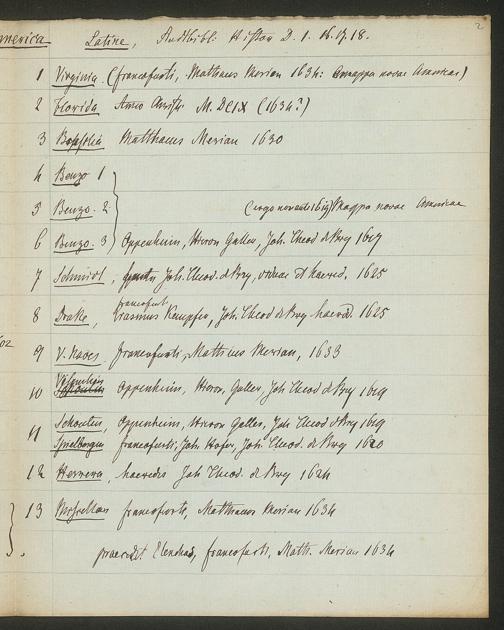 2
America Latine, Stadtbibl: Histor D. 1. 16.17.18.
1 Virginia (francofurti, Matthaeus Merian 1634: mappa novae Americae)
2 Florida Anno Christi M.DCIX (1634?)
3 Matthaeus Merian 1630
4 Benzo 1
5 Benzo. 2 Mappa novae Americae
6 Benzo. 3 Oppenheim, Hieron Galler, Joh. Theod de Bry 1617
7 Schmidt, Joh. Theod. de Bry, viduae et haered. 1625
francofurt
8 Drake, Erasmus Kempfer, Joh. Theod de Bry haered. 1625
02
9 V. Naves, francofurti, Matthaeus Merian, 1633
10 Oppenheim, Hieron. Galler, Joh Theod de Bry 1619
11 Schouten, Oppenheim, Hieron Galler, Joh Theod de Bry 1619
Spielbergen francofurti, Joh. Hofer, Joh. Theod. de Bry 1620
12 Herrera, haeredes Joh Theod. de Bry 1624
13 francofurti, Matthaeus Merian 1634
praecedit Elenchus, francofurti, Matth. Merian 1634